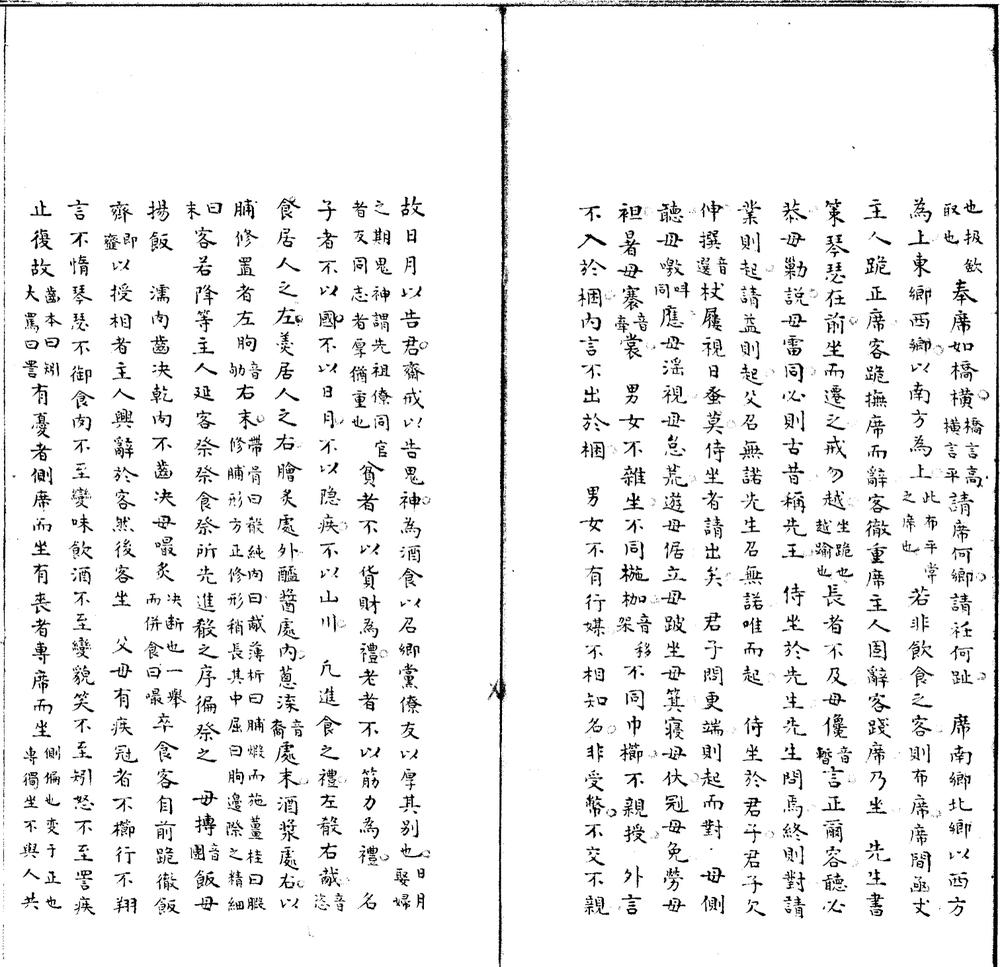 也扱斂取也奉席如橋橫橋言高橫言平請席何鄉請衽何趾　席南鄉北鄉以西方
為上東鄉西鄉以南方為上此布平常之席也　若非飲食之客則布席席間函丈
主人跪正席客跪撫席而辭客徹重席主人固辭客踐席乃坐　先生書
策琴瑟在前坐而遷之戒勿越坐跪也越踰也長者不及毋儳音暫言正爾容聽必
恭毋勦說毋雷同必則古昔稱先王　侍坐於先生先生問焉終則對請
業則起請益則起父召無諾先生召無諾唯而起　侍坐於君子君子欠
伸撰音選杖屨視日蚤莫侍坐者請出矣　君子問更端則起而對．毋側
聽毋噭叫同應毋淫視毋怠荒遊毋倨立毋跛坐毋箕寢毋伏冠毋免勞毋
袒暑毋褰音牽裳　男女不雜坐不同椸枷音移架不同巾櫛不親授　外言
不入於梱內言不出於梱　男女不有行媒不相知名非受幣不交不親
故日月以告君齋戒以告鬼神為酒食以召鄉黨僚友以厚其別也日月娶婦
之期鬼神謂先祖僚同官者友同志者厚猶重也　貧者不以貨財為禮老者不以筋力為禮　名
子者不以國不以日月不以隐疾不以山川　凡進食之禮左殽右胾音恣
食居人之左羮居人之右膾炙處外醯醬處內蔥渫音裔處末酒漿處右以
脯修置者左朐音劬右末帶骨曰殽純肉曰胾薄析曰脯煅而施薑桂曰腶修脯形方正修形稍長其中屈曰朐邊際之精細
曰末客若降等主人延客祭祭食祭所先進殽之序徧祭之　毋摶音團飯毋
揚飯　濡肉齒决乾肉不齒决毋嘬炙决断也一舉而併食曰嘬卒食客自前跪徹飯
齊即虀以授相者主人興辭於客然後客坐　父母有疾冠者不櫛行不翔
言不惰琴瑟不御食肉不至變味飲酒不至變貌笑不至矧怒不至詈疾
止復故齒本曰矧大罵曰詈有憂者側席而坐有喪者專席而坐側偏也变于正也專獨坐不與人共